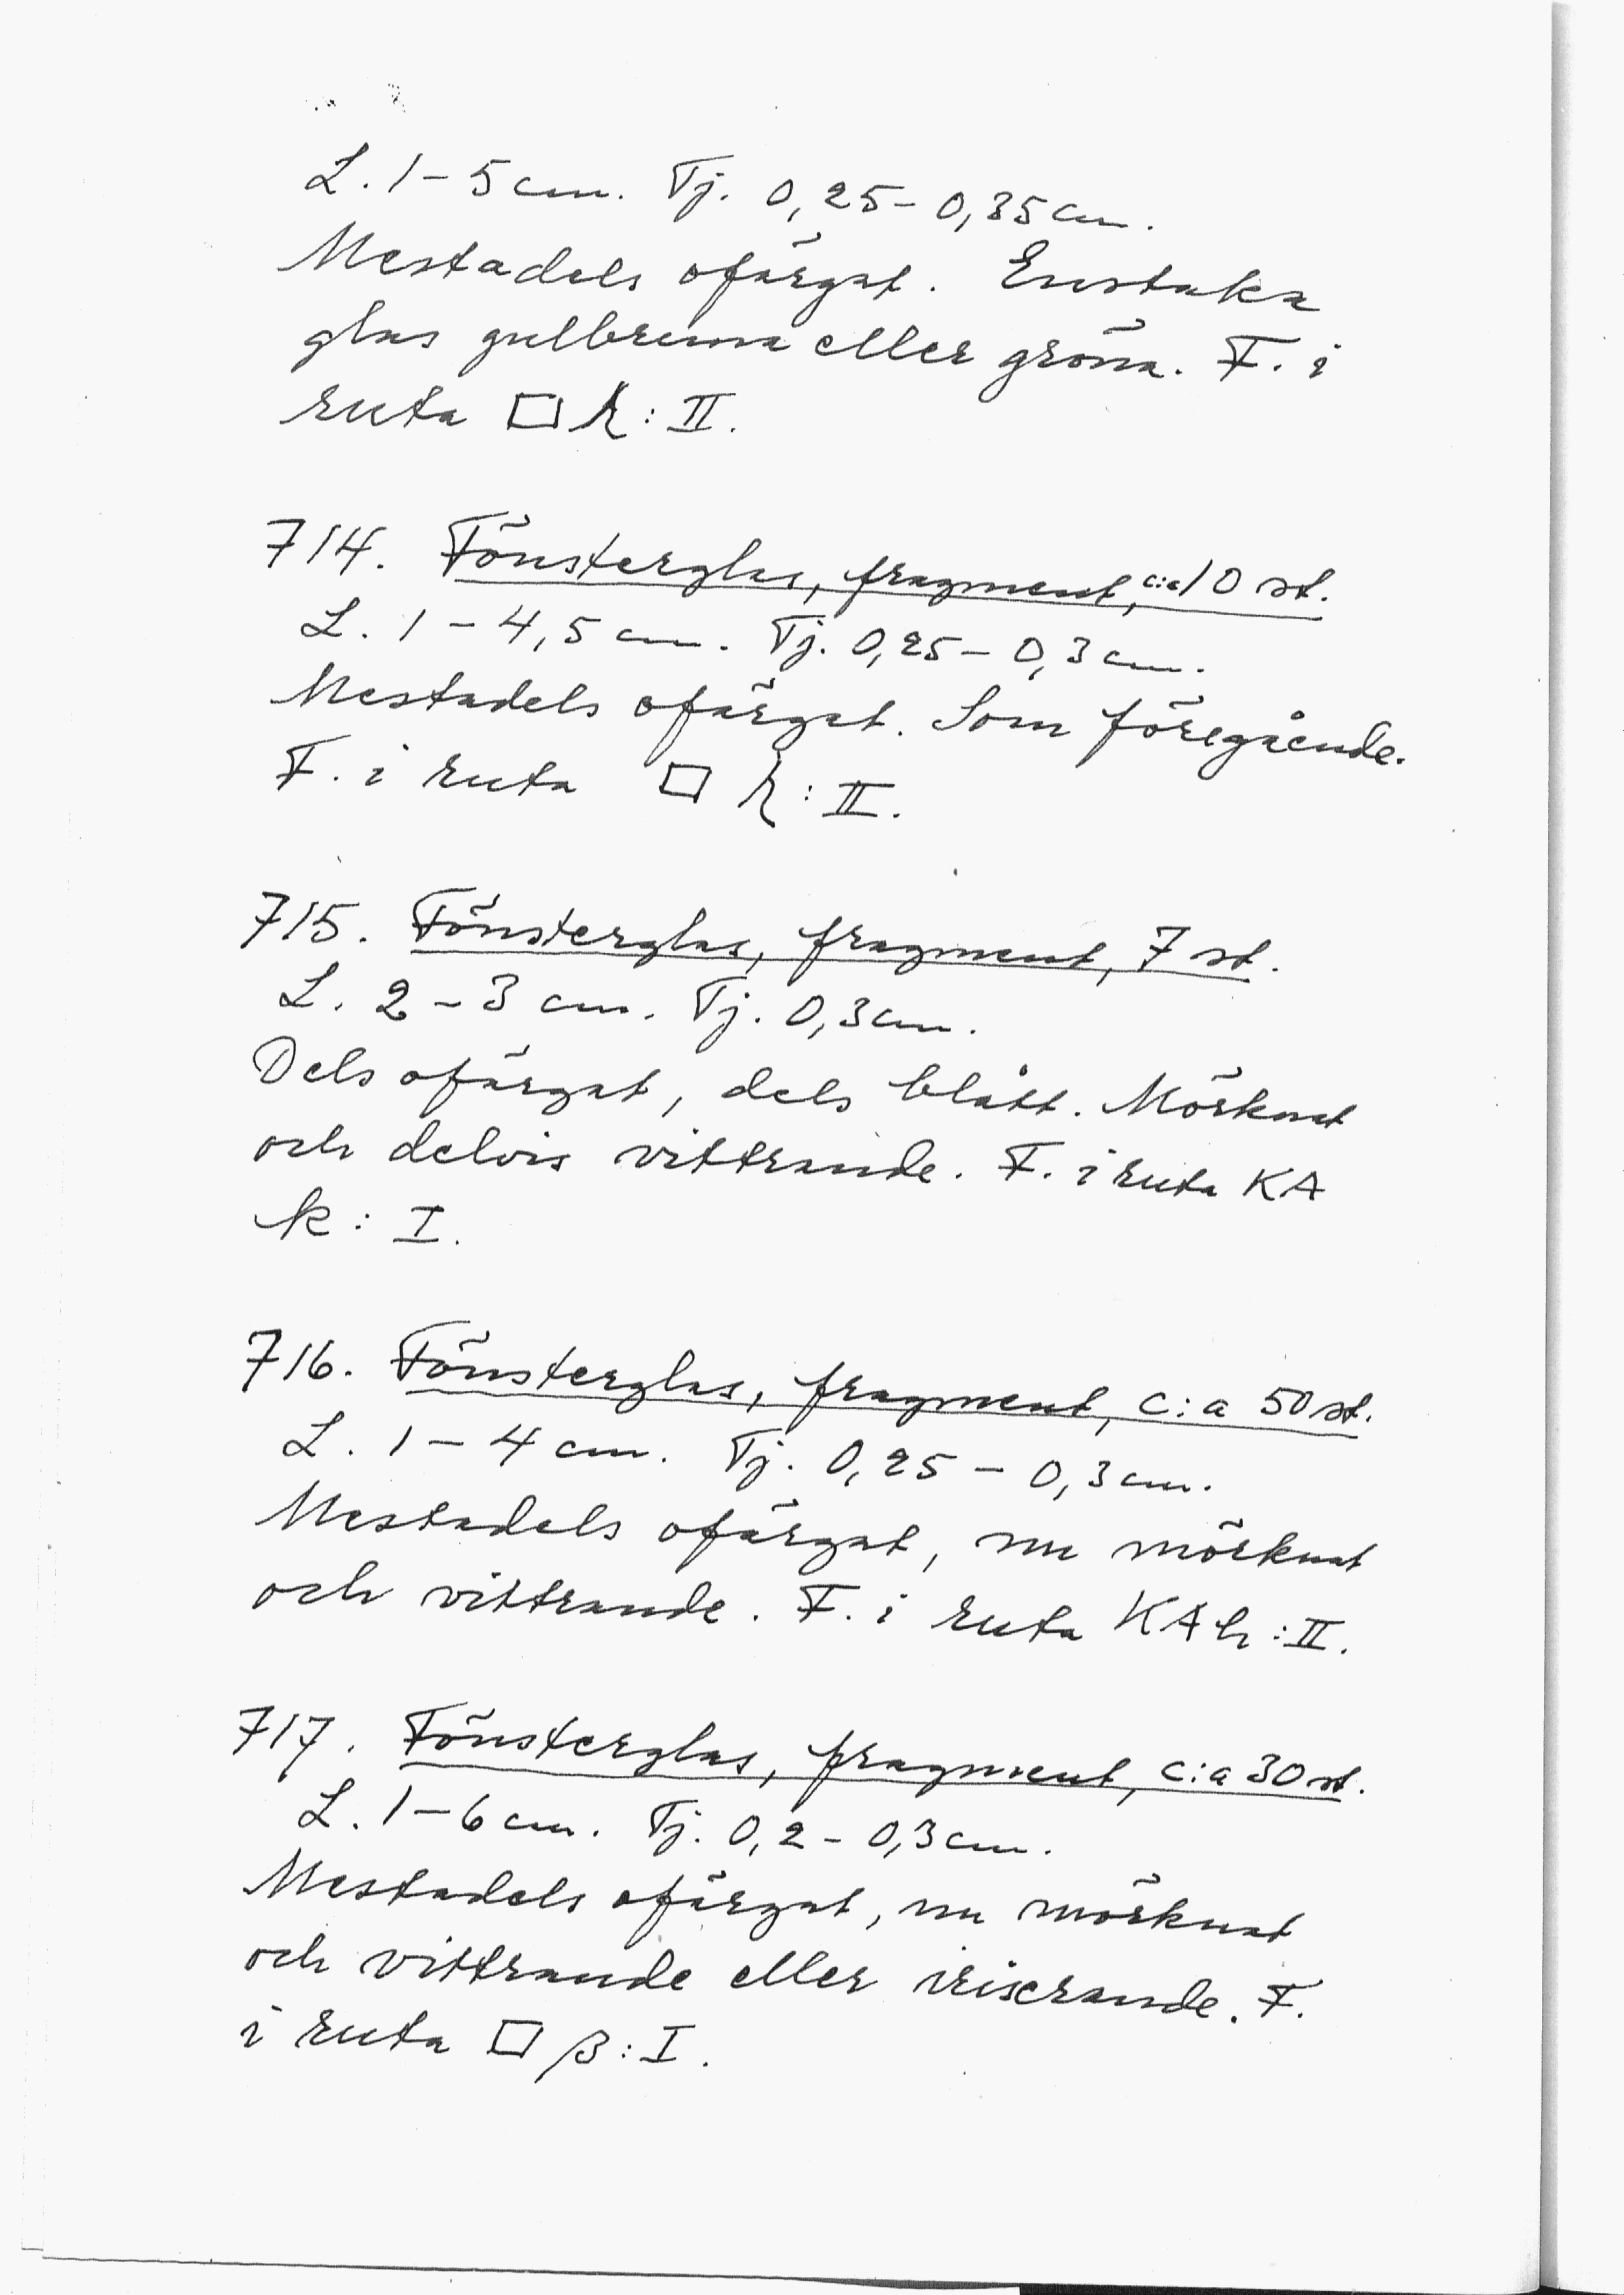 L. 1-5 cm. Tj. 0,25-0,35 cm.
Mestadels ofärgat. Enstaka
glas gulbruna eller gröna. F. i
ruta □ k: II.
714. Fönsterglas, fragment, c:a 10 st.
L. 1-4,5 cm. Tj. 0,25-0,3 cm.
Mestadels ofärgat. Som föregående.
F. i ruta □ k: II.
715. Fönsterglas, fragment, 7 st.
L. 2-3 cm. Tj. 0,3 cm.
Dels ofärgat, dels blått. Mörknat
och delvis vittrande. F. i ruta KA
k: I.
716. Fönsterglas, fragment, c:a 50 st.
L. 1-4 cm. Tj. 0,25-0,3 cm.
Mestadels ofärgat, nu mörknat
och vittrande. F. i ruta KA h: II.
717. Fönsterglas, fragment, c:a 30 st.
L. 1-6 cm. Tj. 0,2-0,3 cm.
Mestadels ofärgat, nu mörknat
och vittrande eller iriserande. F.
i ruta □ β: I.